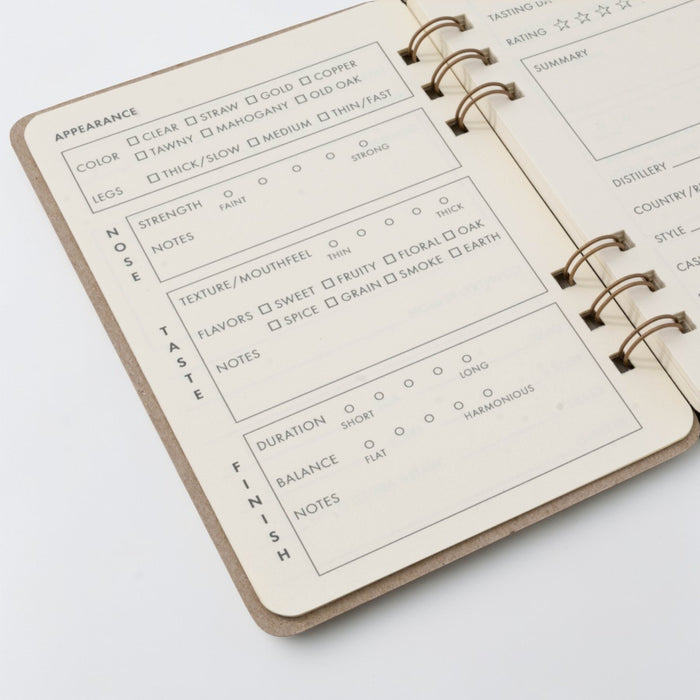 APPEARANCE
COLOR CLEAR STRAW GOLD COPPER
TAWNY MAHOGANY OLD OAK
LEGS THICK/SLOW MEDIUM THIN/FAST
NOSE
STRENGTH
FAINT STRONG
NOTES
TASTE
TEXTURE/MOUTHFEEL
THIN THICK
FLAVORS SWEET FRUITY FLORAL OAK
SPICE GRAIN SMOKE EARTH
NOTES
FINISH
DURATION
SHORT LONG
BALANCE
FLAT HARMONIOUS
NOTES
TASTING DA
RATING
SUMMARY
DISTILLERY
COUNTRY/R
STYLE
CAS